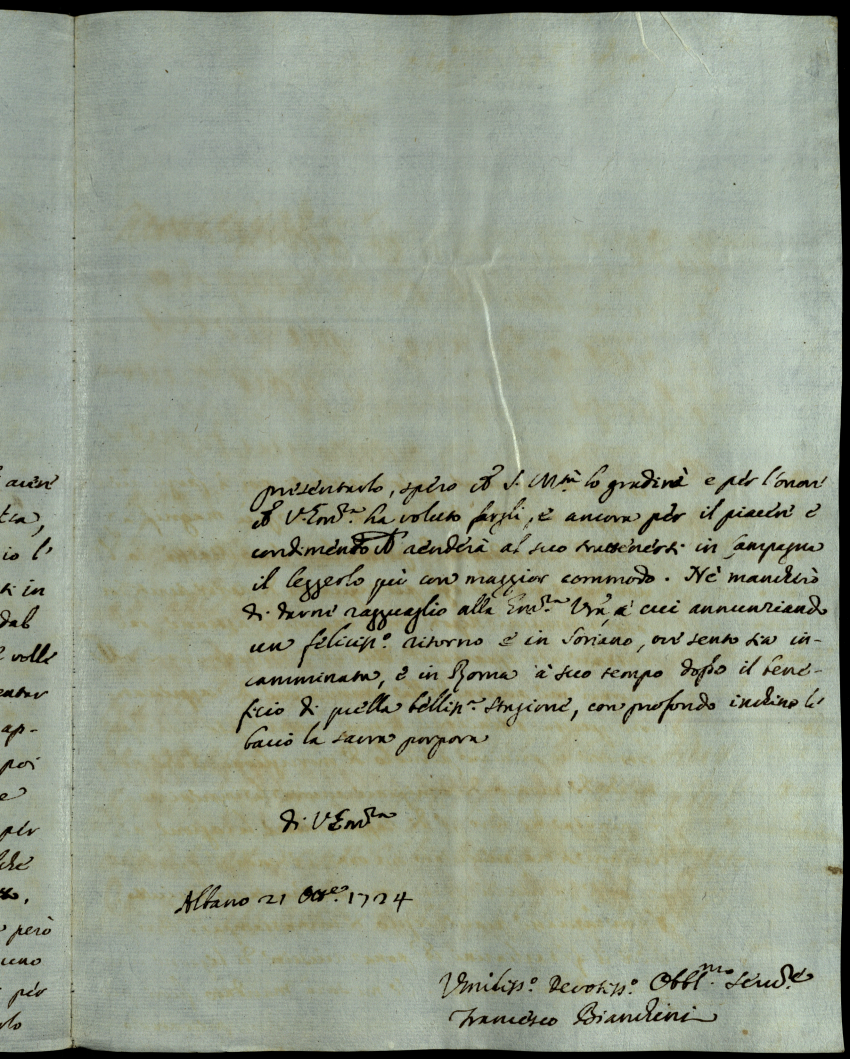 avere
tta,
io l'
ti in
dal
volle
entar
ap-
poi
e
per
però
uno
per
rlo
presentarlo, spero ch S. M.tà lo gradirà e per l'onore
ch V. Em.za ha voluto fargli, e ancora per il piacere e
condimento ch renderà al suo trattenersi in Campagna
il leggerlo più con maggior commodo. Nè mancherò
di darne ragguaglio alla Em.za Vra, a cui annunziando
un feliciss.o ritorno e in Soriano, ove sento sia in-
camminata, e in Roma à suo tempo dopo il bene-
ficio di quella belliss.a stagione, con profondo inchino le
bacio la sacra porpora
di V. Em.za
Albano 21 Ott.e 1724
Umiliss.o Devotiss.o Obbl.mo Serv.re
Francesco Bianchini